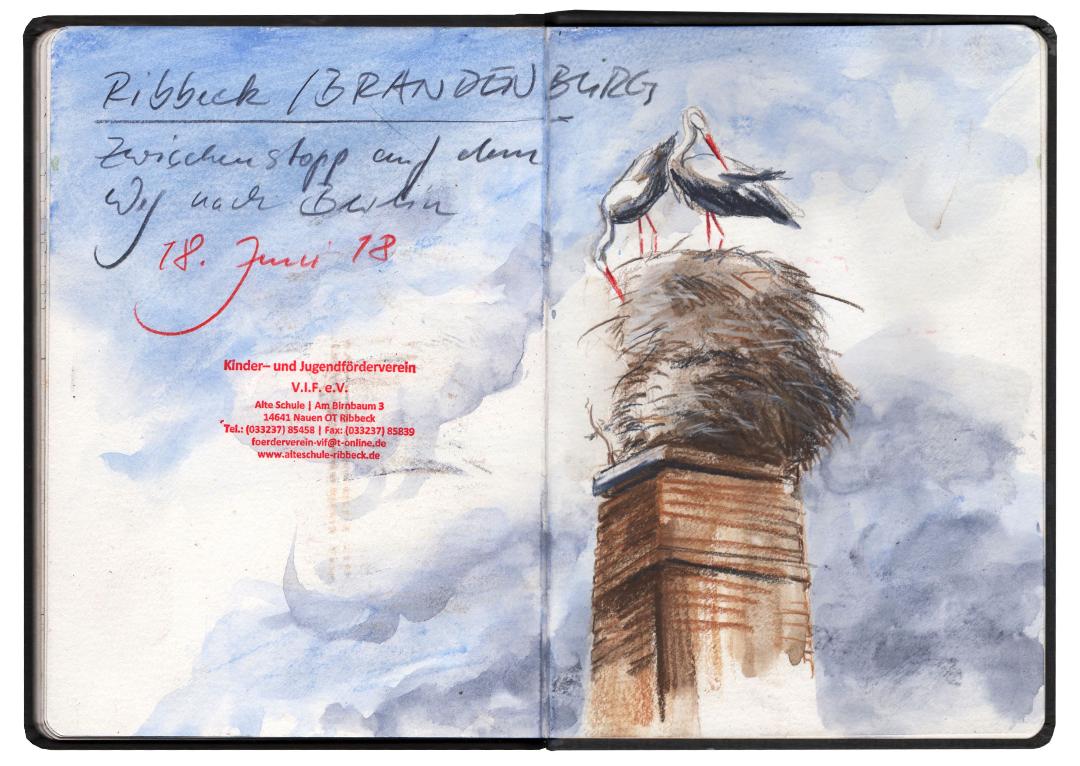 Ribbeck / BRANDENBURG
Zwischenstopp auf dem
Weg nach Berlin
18. Juni 18
Kinder- und Jugendförderverein
V.I.F. e.V.
Alte Schule | Am Birnbaum 3
14641 Nauen OT Ribbeck
Tel.: (033237) 85458 | Fax: (033237) 85839
foerderverein-vif@t-online.de
www.alteschule-ribbeck.de